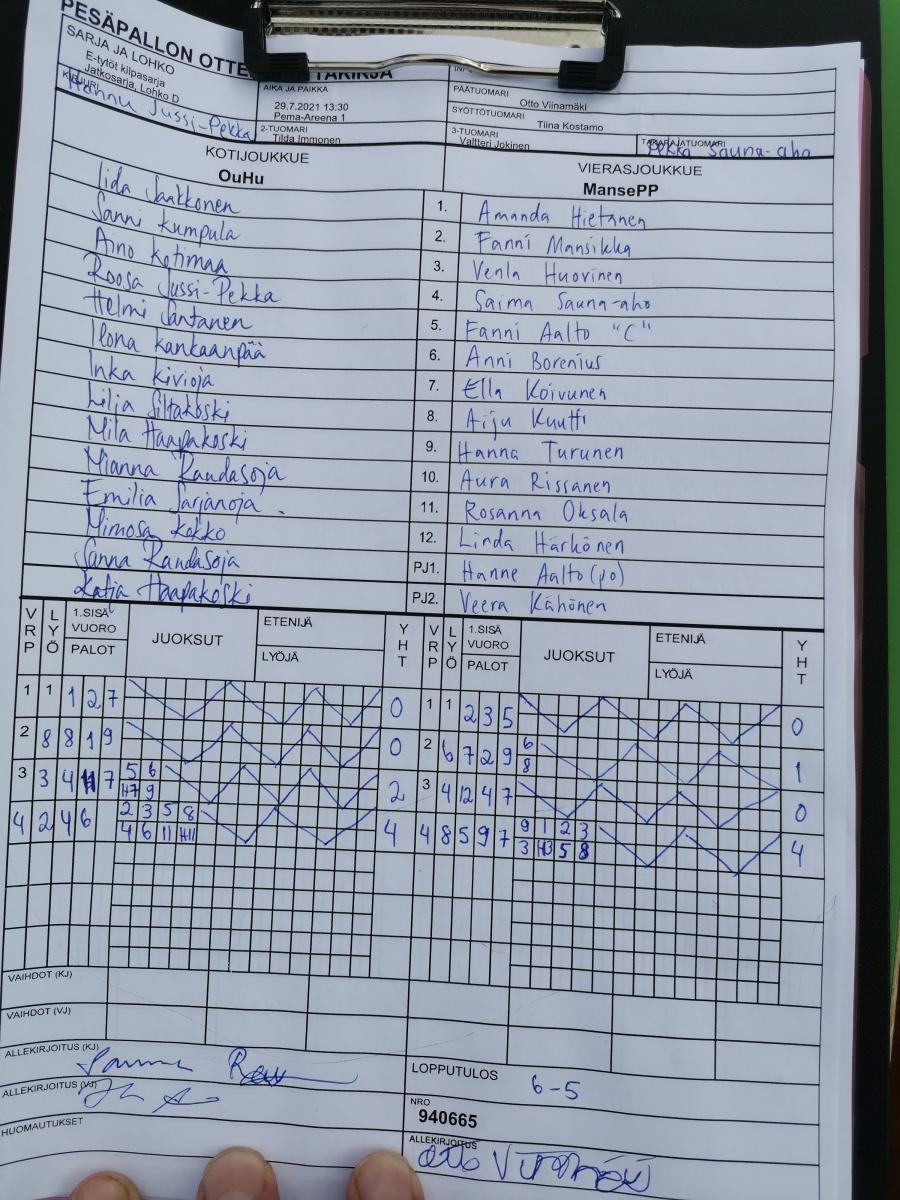 PESÄPALLON
SARJA JA LOHKO
E-tytöt kilpasarja
Jatkosarja, Lohko D
KIRJURI
Hannu Jussi-Pekka
AIKA JA PAIKKA
29.7.2021 13:30
Pema-Areena 1
2-TUOMARI
Tilda Immonen
PÄÄTUOMARI
Otto Viinamäki
SYÖTTÖTUOMARI
Tiina Kostamo
3-TUOMARI
Valtteri Jokinen
TAKARAJATUOMARI
Pekka Sauna-aho
KOTIJOUKKUE
OuHu
VIERASJOUKKUE
MansePP
Iida Jaakkonen 1. Amanda Hietanen
Sanni Kumpula 2. Fanni Mansikka
Aino Kotimaa 3. Venla Huovinen
Roosa Jussi-Pekka 4. Saima Sauna-aho
Helmi Santanen 5. Fanni Aalto "C"
Ilona Kankaanpää 6. Anni Borenius
Inka Kivioja 7. Ella Koivunen
Lilja Siltakoski 8. Aiju Kuutti
Mila Haapakoski 9. Hanna Turunen
Mianna Raudasoja 10. Aura Rissanen
Emilia Sarjanoja 11. Rosanna Oksala
Mimosa Kokko 12. Linda Härkönen
Sanna Raudasoja PJ1. Hanne Aalto (jo)
Katja Haapakoski PJ2. Veera Kähönen
VRP LYÖ 1.SISÄ VUORO PALOT JUOKSUT ETENIJÄ LYÖJÄ YHT VRP LYÖ 1.SISÄ VUORO PALOT JUOKSUT ETENIJÄ LYÖJÄ YHT
1 1 1 2 7 0 1 1 2 3 5 0
2 8 8 1 9 0 2 6 7 2 9 6 1
8
3 3 4 7 5 6 2 3 4 12 4 7 0
H7 9
4 2 4 6 2 3 5 8 4 4 8 5 9 7 9 1 2 3 4
4 6 11 H11 3 H3 5 8
VAIHDOT (KJ)
VAIHDOT (VJ)
ALLEKIRJOITUS (KJ)
ALLEKIRJOITUS (VJ)
HUOMAUTUKSET
LOPPUTULOS 6-5
NRO
940665
ALLEKIRJOITUS
Otto Viinamäki